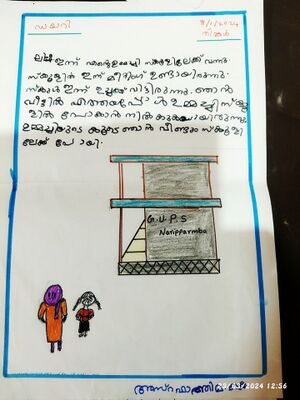 ഡയറി
8/1/2024
തിങ്കൾ
ഇന്ന് എന്റെ സ്കൂളിലേക്ക് വന്നു.
സ്കൂളിൽ ഇന്ന് മീറ്റിംഗ് ഉണ്ടായിരുന്നു.
സ്കൂൾ ഇന്ന് ഉച്ചക്ക് വിട്ടിരുന്നു. ഞാൻ
വീട്ടിൽ എത്തിയപ്പോൾ ഉമ്മച്ചി സ്കൂ
ളിൽ പോകാൻ നിൽക്കുകയായിരുന്നു.
ഉമ്മച്ചിയുടെ കൂടെ ഞാൻ വീണ്ടും സ്കൂളി
ലേക്ക് പോയി.
G.U.P.S
Naripparmba
12:56